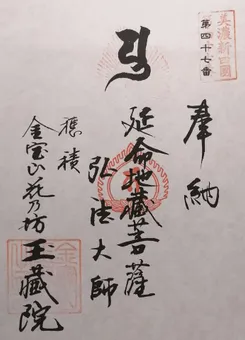 美濃新四國
第四十七番
奉納
延命地蔵菩薩
弘法大師
應積
金宝山花乃坊
玉蔵院